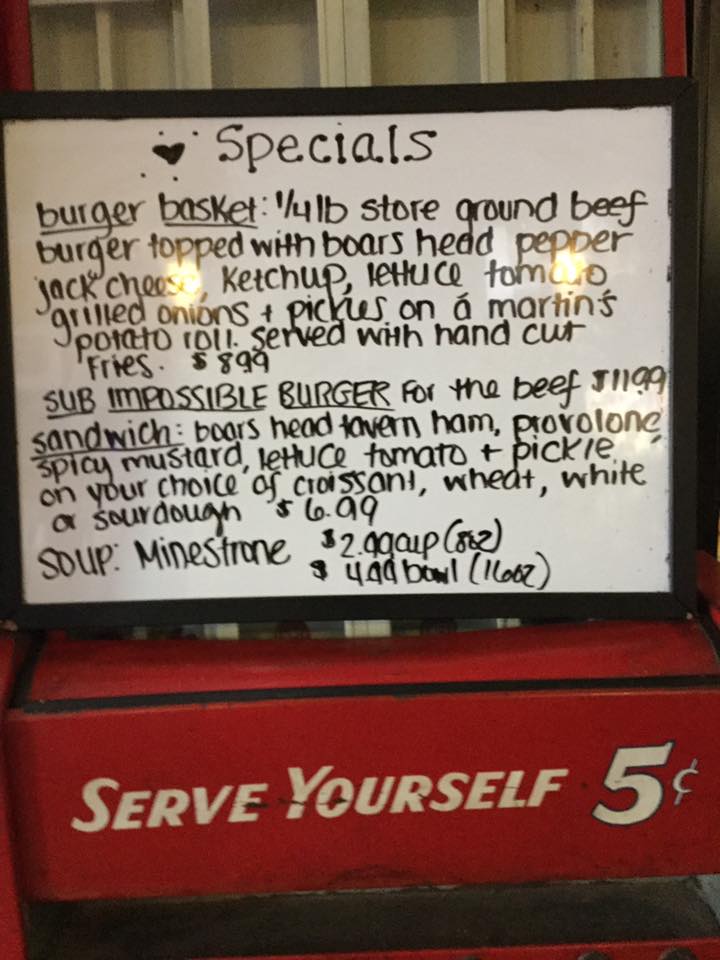 Specials
burger basket: 1/4 lb store ground beef
burger topped with boars head pepper
jack cheese, ketchup, lettuce tomato
grilled onions + pickles on a martin's
potato roll. served with hand cut
fries. $899
SUB IMPOSSIBLE BURGER for the beef $1199
sandwich: boars head tavern ham, provolone,
spicy mustard, lettuce tomato + pickle
on your choice of croissant, wheat, white
or sourdough $6.99
SOUP: Minestrone $2.99 cup (8oz)
$4.99 bowl (16oz)
SERVE YOURSELF 5¢